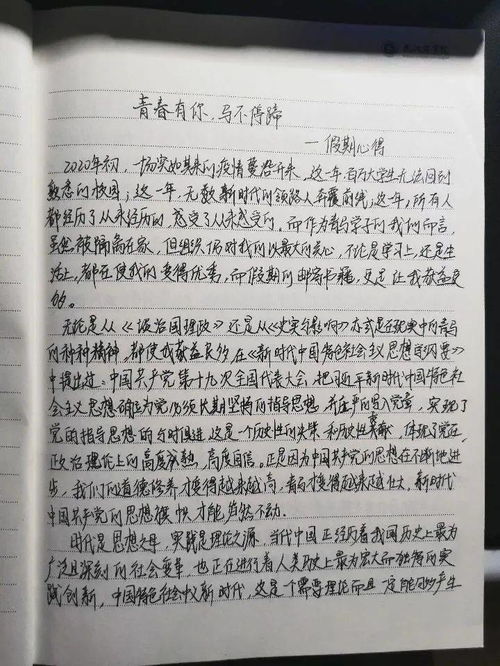 青春有你,马不停蹄
—假期心得
2020年初,一场突如其来的疫情蔓延开来,这一年百万大学生无法回到
熟悉的校园;这一年,无数新时代的领路人奔赴前线;这一年,所有人
都经历了从未经历的,感受了从未感受的,而作为青马学子的我们而言,
虽然被隔离在家,但组织仍对我们以最大的关心,不论是学习上,还是生
活上,都在使我们变得优秀,而假期的邮寄书籍,更是让我获益良
多。
无论是从《谈治国理政》还是从《史实与影响》亦或是在现实中的青马
的种种精神,都使我获益良多,在《新时代中国特色社会主义思想学习纲要》
中提出过:中国共产党第十九次全国代表大会,把习近平新时代中国特色社
会主义思想确立为党必须长期坚持的指导思想,并庄严的写入党章,实现了
党的指导思想的与时俱进,这是一个历史性的决策和历史性贡献,体现了党在
政治理论上的高度成熟,高度自信。正是因为中国共产党的思想在不断地进
步,我们的道德修养才变得越来越高,青马才变得越来越壮大,新时代
中国共产党的思想旗帜才能岿然不动。
时代是思想之母,实践是理论之源,当代中国正经历着我国历史上最为
广泛且深刻的社会变革,也正在进行着人类历史上最为宏大而独特的实
践创新,中国特色社会主义新时代,这是个需要理论而且一定能够产生